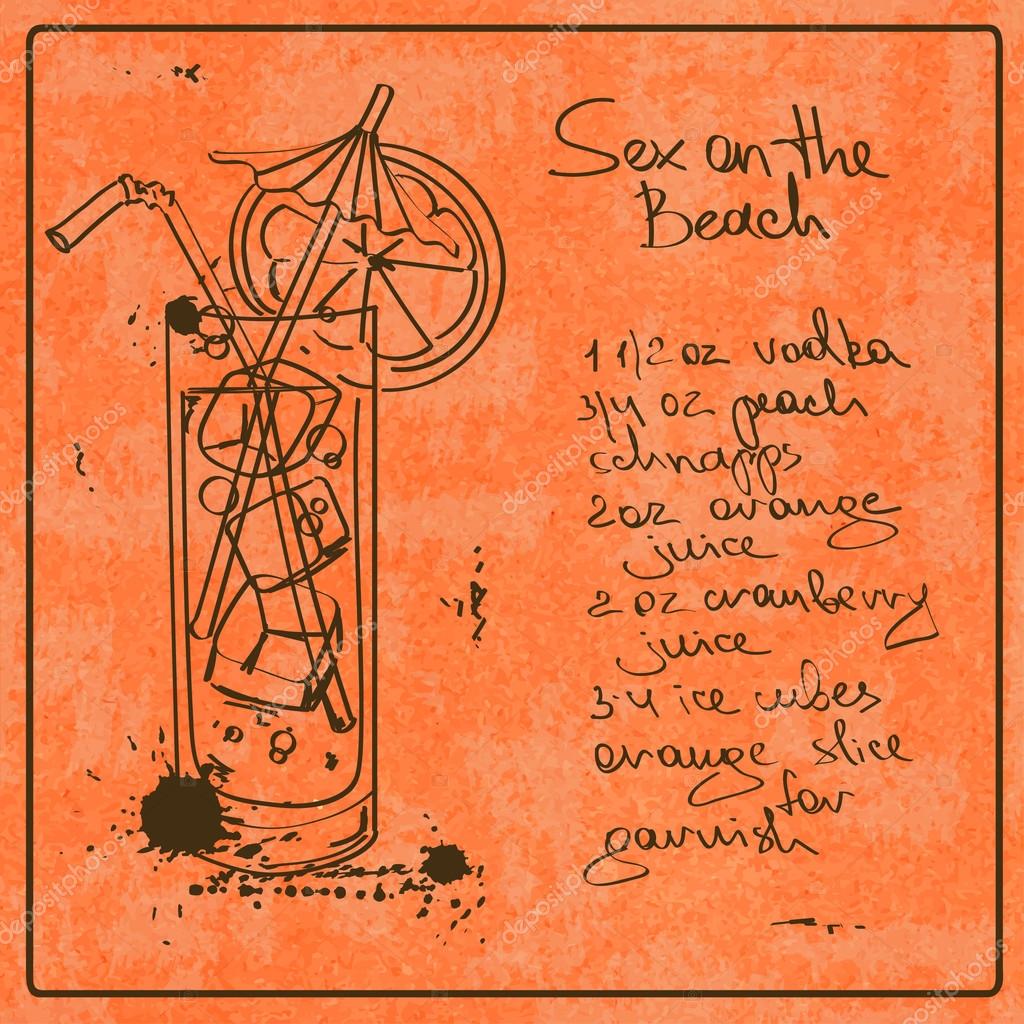 Sex on the
Beach
1 1/2 oz vodka
3/4 oz peach
schnapps
2 oz orange
juice
2 oz cranberry
juice
3-4 ice cubes
orange slice
for
garnish
depositphotos